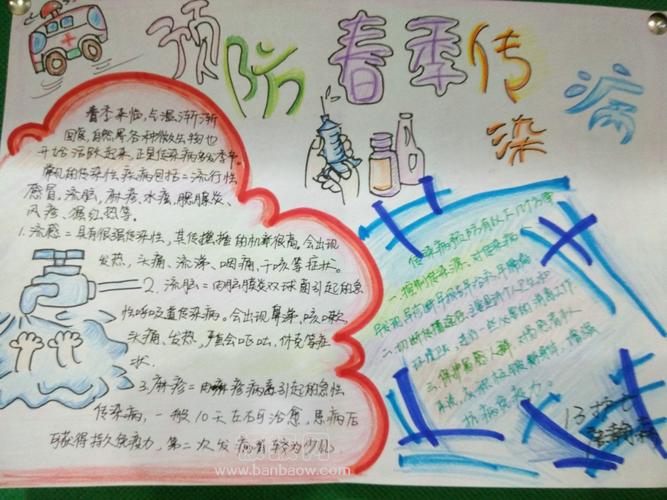 预防春季传染病
春季来临，气温渐渐
回暖，自然界各种微生物也
开始活跃起来，正是传染病多发季节。
常见的传染性疾病包括：流行性
感冒、流脑、麻疹、水痘、腮腺炎、
风疹、猩红热等。
1.流感：具有很强传染性，其传播的机率很高，会出现
发热、头痛、流涕、咽痛、干咳等症状。
2.流脑：由脑膜炎双球菌引起的急
性呼吸道传染病，会出现鼻涕、咳嗽、
头痛、发热，会呕吐，休克等症
状
3.麻疹：由麻疹病毒引起的急性
传染病，一般10天左右可治愈，患病后
可获得持久免疫力，第二次发病者较为少见
传染病预防有以下几个方
一.控制传染源：对传染病
早发现早诊断早报告早治疗早隔离
二.切断传播途径：注意个人卫生和
环境卫生，进行一些必要的消毒工作
三.保护易感人群：对易感
抗病免疫力。
13护七
www.banbaow.com